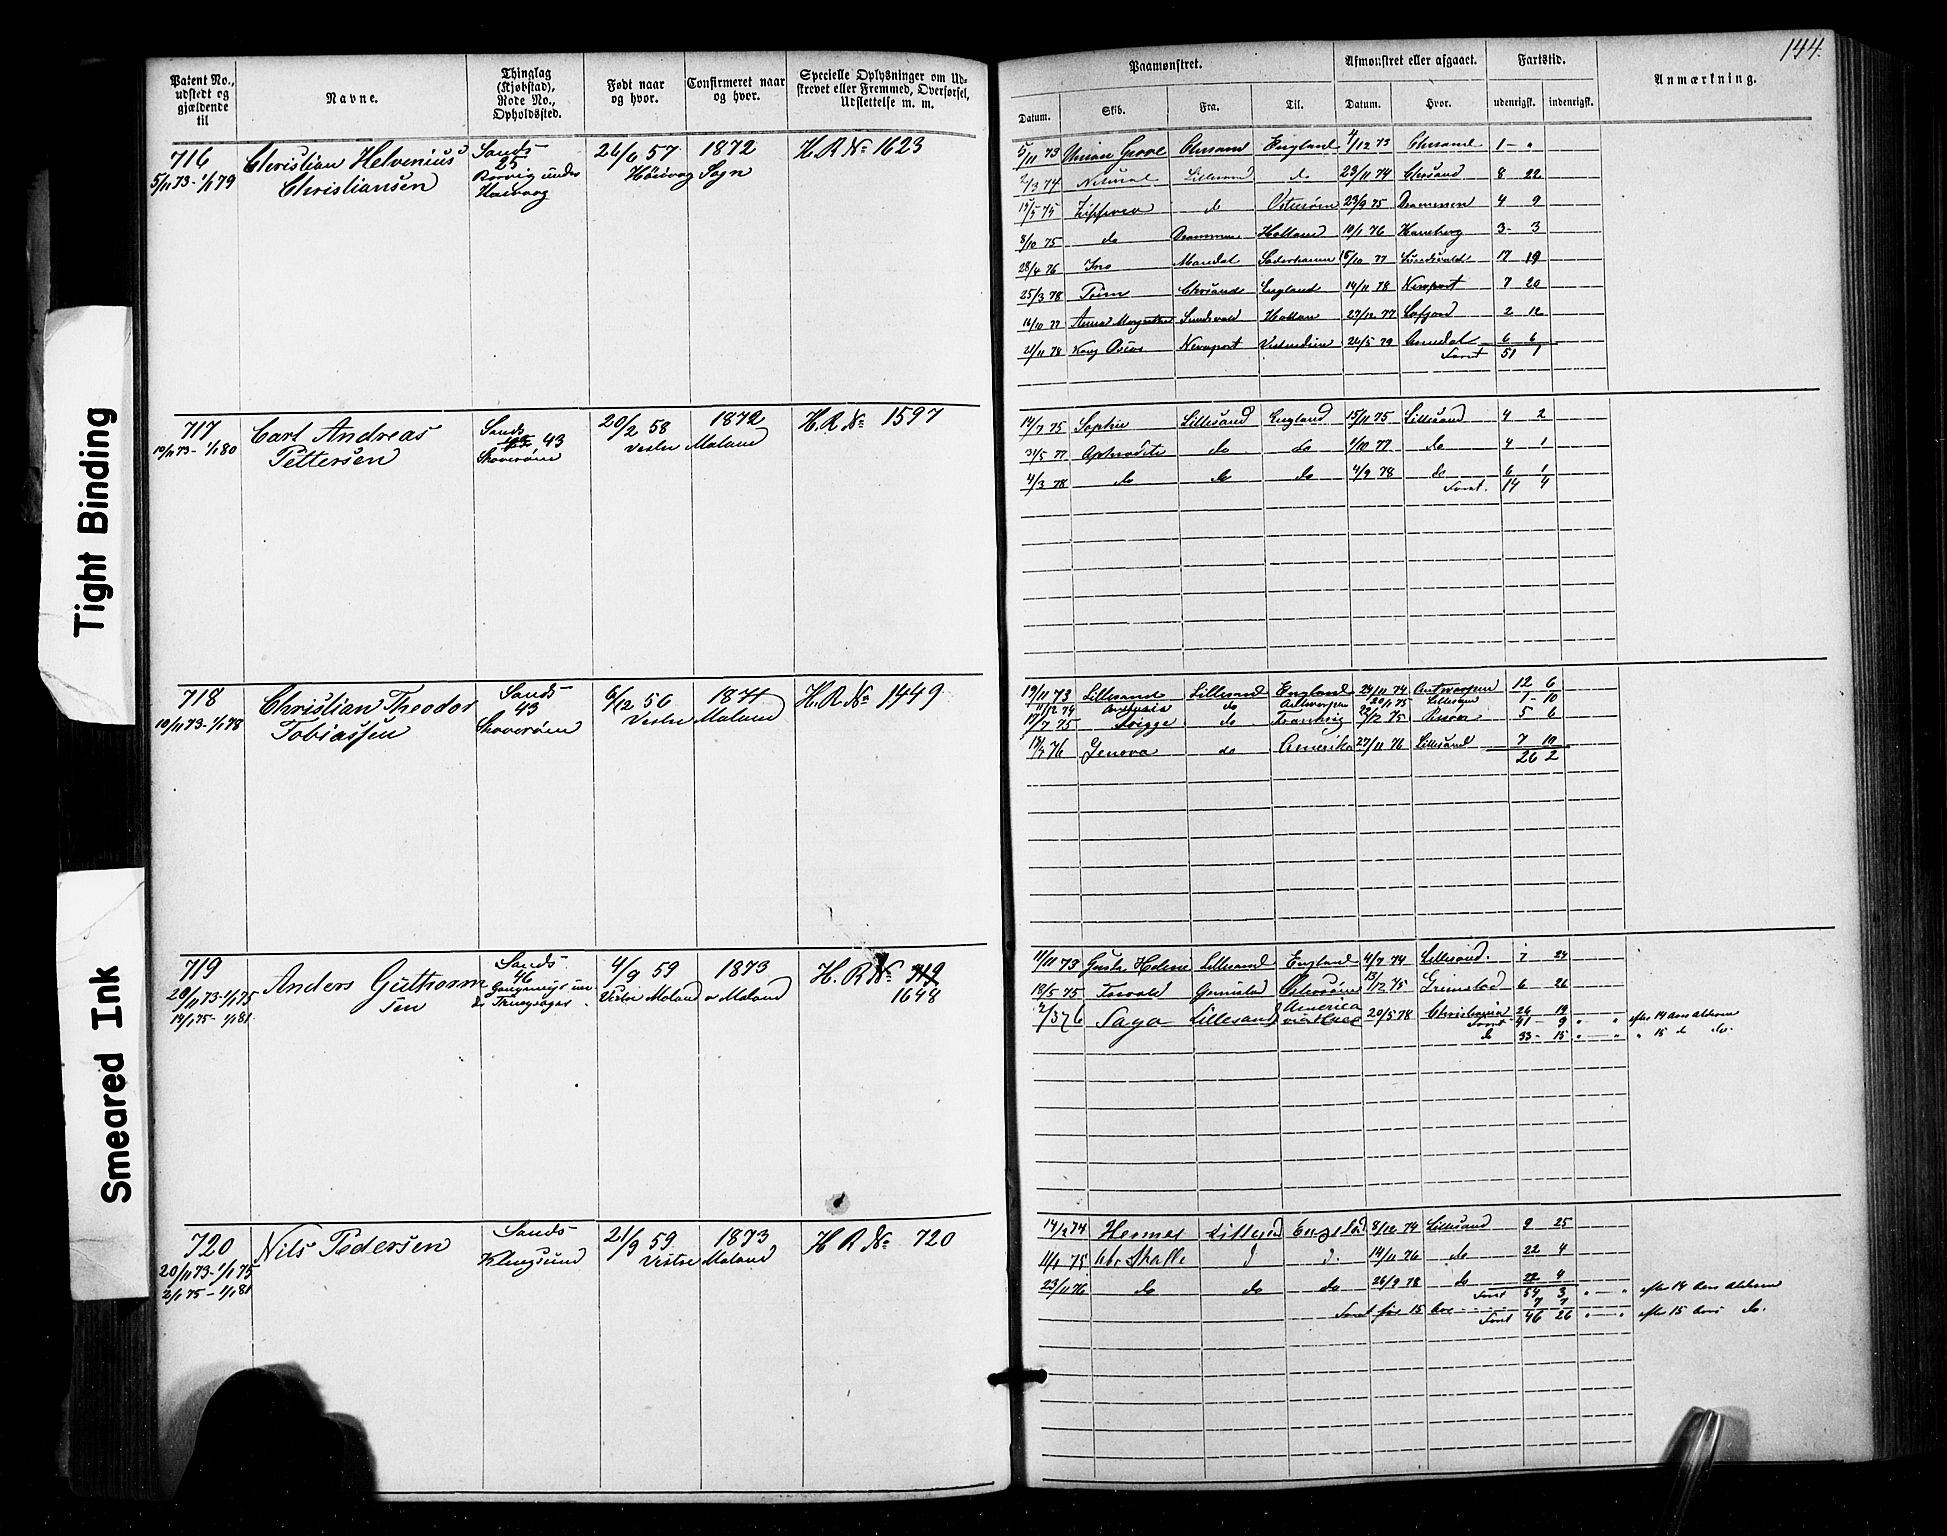 144.
Patent No., udstedt og gjældende til
Navne.
Thinglag (Kjøbstad), Rode No., Opholdssted.
Født naar og hvor.
Confirmeret naar og hvor.
Specielle Oplysninger om Udskrevet eller Fremmed, Overførsel, Udslettelse m. m.
Paamønstret.
Afmønstret eller afgaaet.
Fartstid.
Anmærkning.
Datum. Skib. Fra. Til. Datum. Hvor. udenrigsk. indenrigsk.
716 Christian Helvenius Sands 26/6 57 1872 H. R. No 1623
5/11 73 - 1/1 79 Christiansen 25 Høivaag Sogn
5/11 73 Chrsand England 4/12 73 Chrsand 1 - "
2/3 74 Lillesand do 23/11 74 Chrsand 8 22
19/5 75 do 23/9 75 Drammen 4 9
8/10 75 do Drammen Holland 10/1 76 3 - 3
28/4 76 Ino Mandal Söderhamn 15/10 77 Sundsvaldt 17 19
25/3 78 Chrsand England 14/11 78 Newport 7 20
16/10 77 Anna Margrethe Sundsvald 27/12 77 2 12
21/11 78 Kong Oscar Newport Vestindien 26/5 79 Arendal 6 6
51 1
717 Carl Andreas Sands 20/2 58 1872 H. R. No 1597
19/11 73 - 1/1 80 Pettersen 43 Vestre Moland
Skoverøen
14/7 75 Sophie Lillesand England 15/11 75 Lillesand 4 2
31/5 77 Aphrodite do do 1/10 77 do 4 1
4/3 78 do do do 4/9 78 do 6 1
14 4
718 Christian Theodor Sands 6/12 56 1871 H. R. No 1449
19/11 73 - 1/1 78 Tobiassen 43 Vestre Moland
Skoverøen
19/11 73 Lillesand Lillesand England 24/11 74 Antwerpen 12 6
11/12 74 do Antwerpen 20/1 75 Lillesand 1 - 10
17/7 75 do Frankrig 2/12 75 5 6
18/4 76 Genova do Amerika 27/11 76 Lillesand 7 10
26 2
719 Anders Guthorm Sands 4/9 59 1873 H. R. No 719
20/11 73 - 1/1 75 sen 46 Vestre Moland v Moland 1648
19/1 75 - 1/1 81
11/11 73 Lillesand England 4/7 74 Lillesand. 7 24
18/5 75 Grimstad Østersøen 13/12 75 Grimstad 6 26
2/3 76 Saga Lillesand America 20/5 78 Christiania 26 19
41 - 9 " " efter 14 Aars Alderen
do 33 - 15 " " " 15 d do.
720 Nils Pedersen Sands 21/9 59 1873 H R No 720
20/11 73 - 1/1 75 Vestre Moland
2/1 75 - 1/1 81
14/2 74 Hermes Lillesand England 8/12 74 Lillesand 9 25
11/1 75 14/11 76 do 22 4
23/11 76 do do do 26/9 78 do 22 4
54 3 " " efter 14 Aars Alderen
før 15 7 7
46 26 " " efter 15 Aars do.
Tight Binding
Smeared Ink